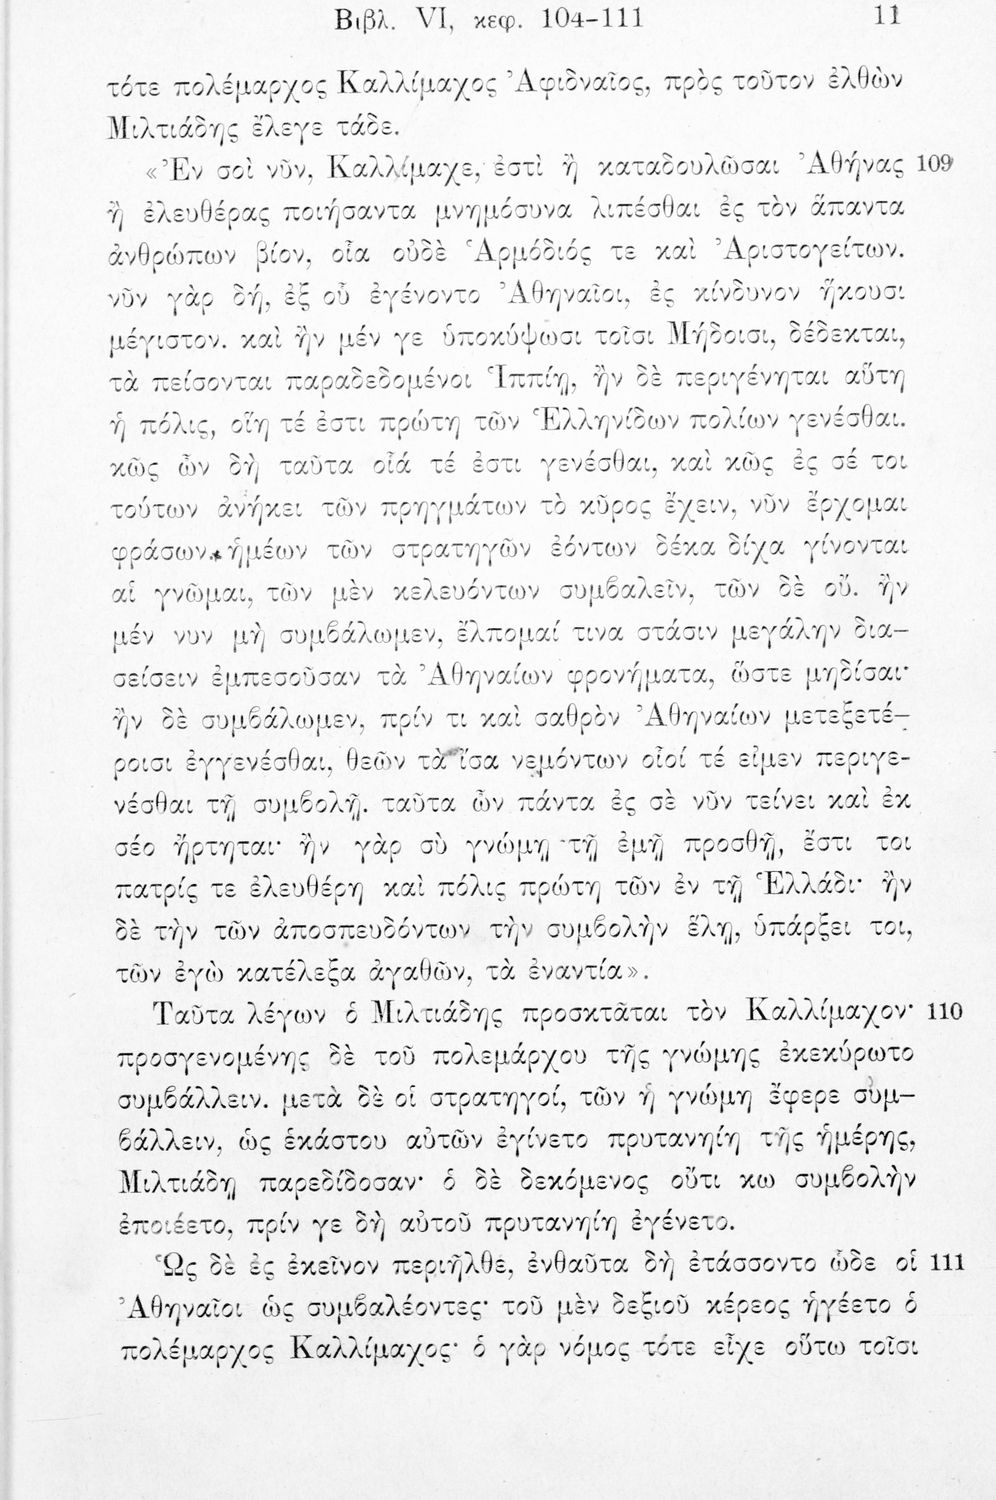 Βιβλ. VI, κεφ. 104-111 11
τότε πολέμαρχος Καλλίμαχος Ἀφιδναῖος, πρὸς τοῦτον ἐλθὼν
Μιλτιάδης ἔλεγε τάδε.
«Ἐν σοὶ νῦν, Καλλίμαχε, ἐστὶ ἢ καταδουλῶσαι Ἀθήνας 109
ἢ ἐλευθέρας ποιήσαντα μνημόσυνα λιπέσθαι ἐς τὸν ἅπαντα
ἀνθρώπων βίον, οἷα οὐδὲ Ἁρμόδιός τε καὶ Ἀριστογείτων.
νῦν γὰρ δή, ἐξ οὗ ἐγένοντο Ἀθηναῖοι, ἐς κίνδυνον ἥκουσι
μέγιστον. καὶ ἢν μέν γε ὑποκύψωσι τοῖσι Μήδοισι, δέδεκται,
τὰ πείσονται παραδεδομένοι Ἱππίῃ, ἢν δὲ περιγένηται αὕτη
ἡ πόλις, οἵη τέ ἐστι πρώτη τῶν Ἑλληνίδων πολίων γενέσθαι.
κῶς ὦν δὴ ταῦτα οἷά τέ ἐστι γενέσθαι, καὶ κῶς ἐς σέ τοι
τούτων ἀνήκει τῶν πρηγμάτων τὸ κῦρος ἔχειν, νῦν ἔρχομαι
φράσων. ἡμέων τῶν στρατηγῶν ἐόντων δέκα δίχα γίνονται
αἱ γνῶμαι, τῶν μὲν κελευόντων συμβαλεῖν, τῶν δὲ οὔ. ἢν
μέν νυν μὴ συμβάλωμεν, ἔλπομαί τινα στάσιν μεγάλην δια-
σείσειν ἐμπεσοῦσαν τὰ Ἀθηναίων φρονήματα, ὥστε μηδίσαι·
ἢν δὲ συμβάλωμεν, πρίν τι καὶ σαθρὸν Ἀθηναίων μετεξετέ-
ροισι ἐγγενέσθαι, θεῶν τὰ ἴσα νεμόντων οἷοί τέ εἰμεν περιγε-
νέσθαι τῇ συμβολῇ. ταῦτα ὦν πάντα ἐς σὲ νῦν τείνει καὶ ἐκ
σέο ἤρτηται· ἢν γὰρ σὺ γνώμῃ τῇ ἐμῇ προσθῇ, ἔστι τοι
πατρίς τε ἐλευθέρη καὶ πόλις πρώτη τῶν ἐν τῇ Ἑλλάδι· ἢν
δὲ τὴν τῶν ἀποσπευδόντων τὴν συμβολὴν ἕλῃ, ὑπάρξει τοι,
τῶν ἐγὼ κατέλεξα ἀγαθῶν, τὰ ἐναντία».
Ταῦτα λέγων ὁ Μιλτιάδης προσκτᾶται τὸν Καλλίμαχον· 110
προσγενομένης δὲ τοῦ πολεμάρχου τῆς γνώμης ἐκεκύρωτο
συμβάλλειν. μετὰ δὲ οἱ στρατηγοί, τῶν ἡ γνώμη ἔφερε συμ-
βάλλειν, ὡς ἑκάστου αὐτῶν ἐγίνετο πρυτανηίη τῆς ἡμέρης,
Μιλτιάδῃ παρεδίδοσαν· ὁ δὲ δεκόμενος οὔτι κω συμβολὴν
ἐποιέετο, πρίν γε δὴ αὐτοῦ πρυτανηίη ἐγένετο.
Ὡς δὲ ἐς ἐκεῖνον περιῆλθε, ἐνθαῦτα δὴ ἐτάσσοντο ὧδε οἱ 111
Ἀθηναῖοι ὡς συμβαλέοντες· τοῦ μὲν δεξιοῦ κέρεος ἡγέετο ὁ
πολέμαρχος Καλλίμαχος· ὁ γὰρ νόμος τότε εἶχε οὕτω τοῖσι